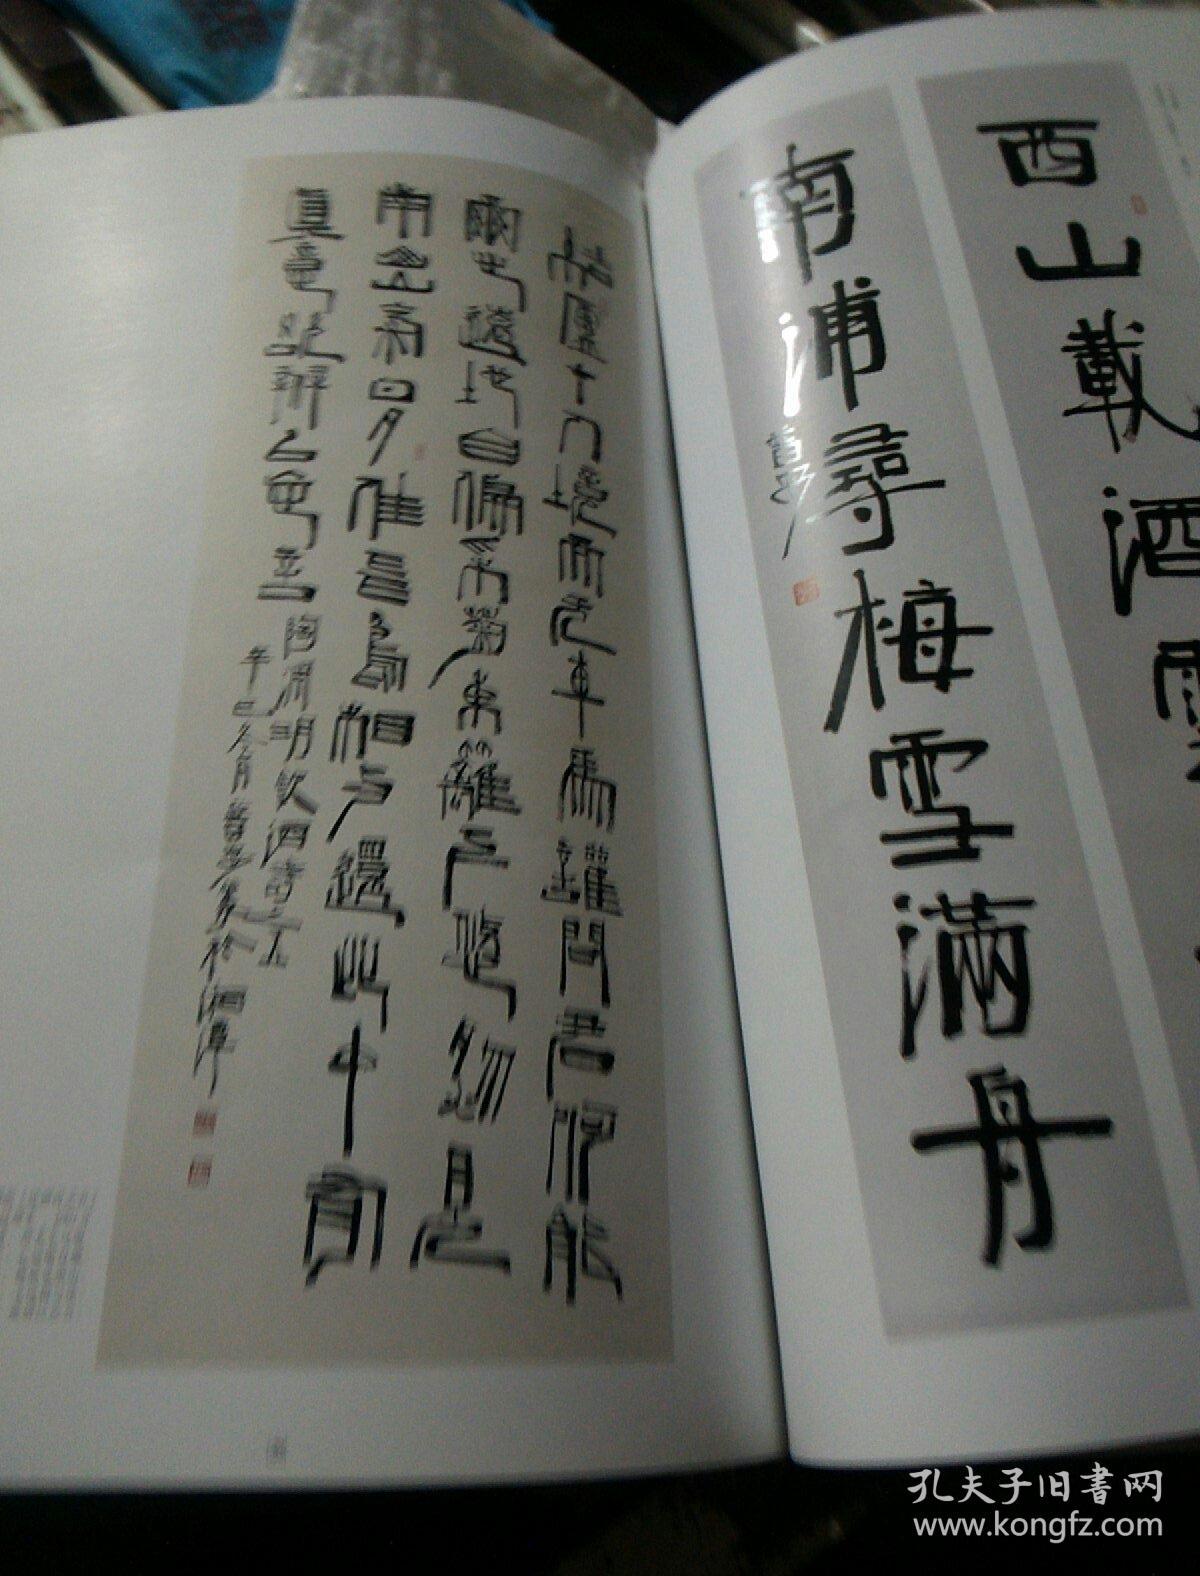 西山載酒雲
南浦尋梅雪滿舟
結廬在人境而无車馬諠問君何能
爾心遠地自偏采菊東籬下悠然見
南山山氣日夕佳飛鳥相与還此中有
真意欲辨已忘言陶淵明飲酒詩之五
辛巳冬月於湘潭
孔夫子旧书网
www.kongfz.com